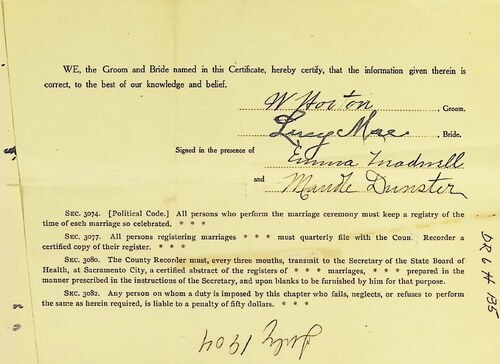 WE, the Groom and Bride named in this Certificate, hereby certify, that the information given therein is
correct, to the best of our knowledge and belief.
W Horton, Groom.
Lucy Mae, Bride.
Signed in the presence of Emma Tradwell
and Maude Dunster
SEC. 3074. [Political Code.] All persons who perform the marriage ceremony must keep a registry of
the time of each marriage so celebrated. * * *
SEC. 3077. All persons registering marriages * * * must quarterly file with the Coun Recorder a
certified copy of their register. * * *
SEC. 3080. The County Recorder must, every three months, transmit to the Secretary of the State Board of
Health, at Sacramento City, a certified abstract of the registers of * * * marriages, * * * prepared in the
manner prescribed in the instructions of the Secretary, and upon blanks to be furnished by him for that purpose.
SEC. 3082. Any person on whom a duty is imposed by this chapter who fails, neglects, or refuses to perform
the same as herein required, is liable to a penalty of fifty dollars. * * *
July 1904